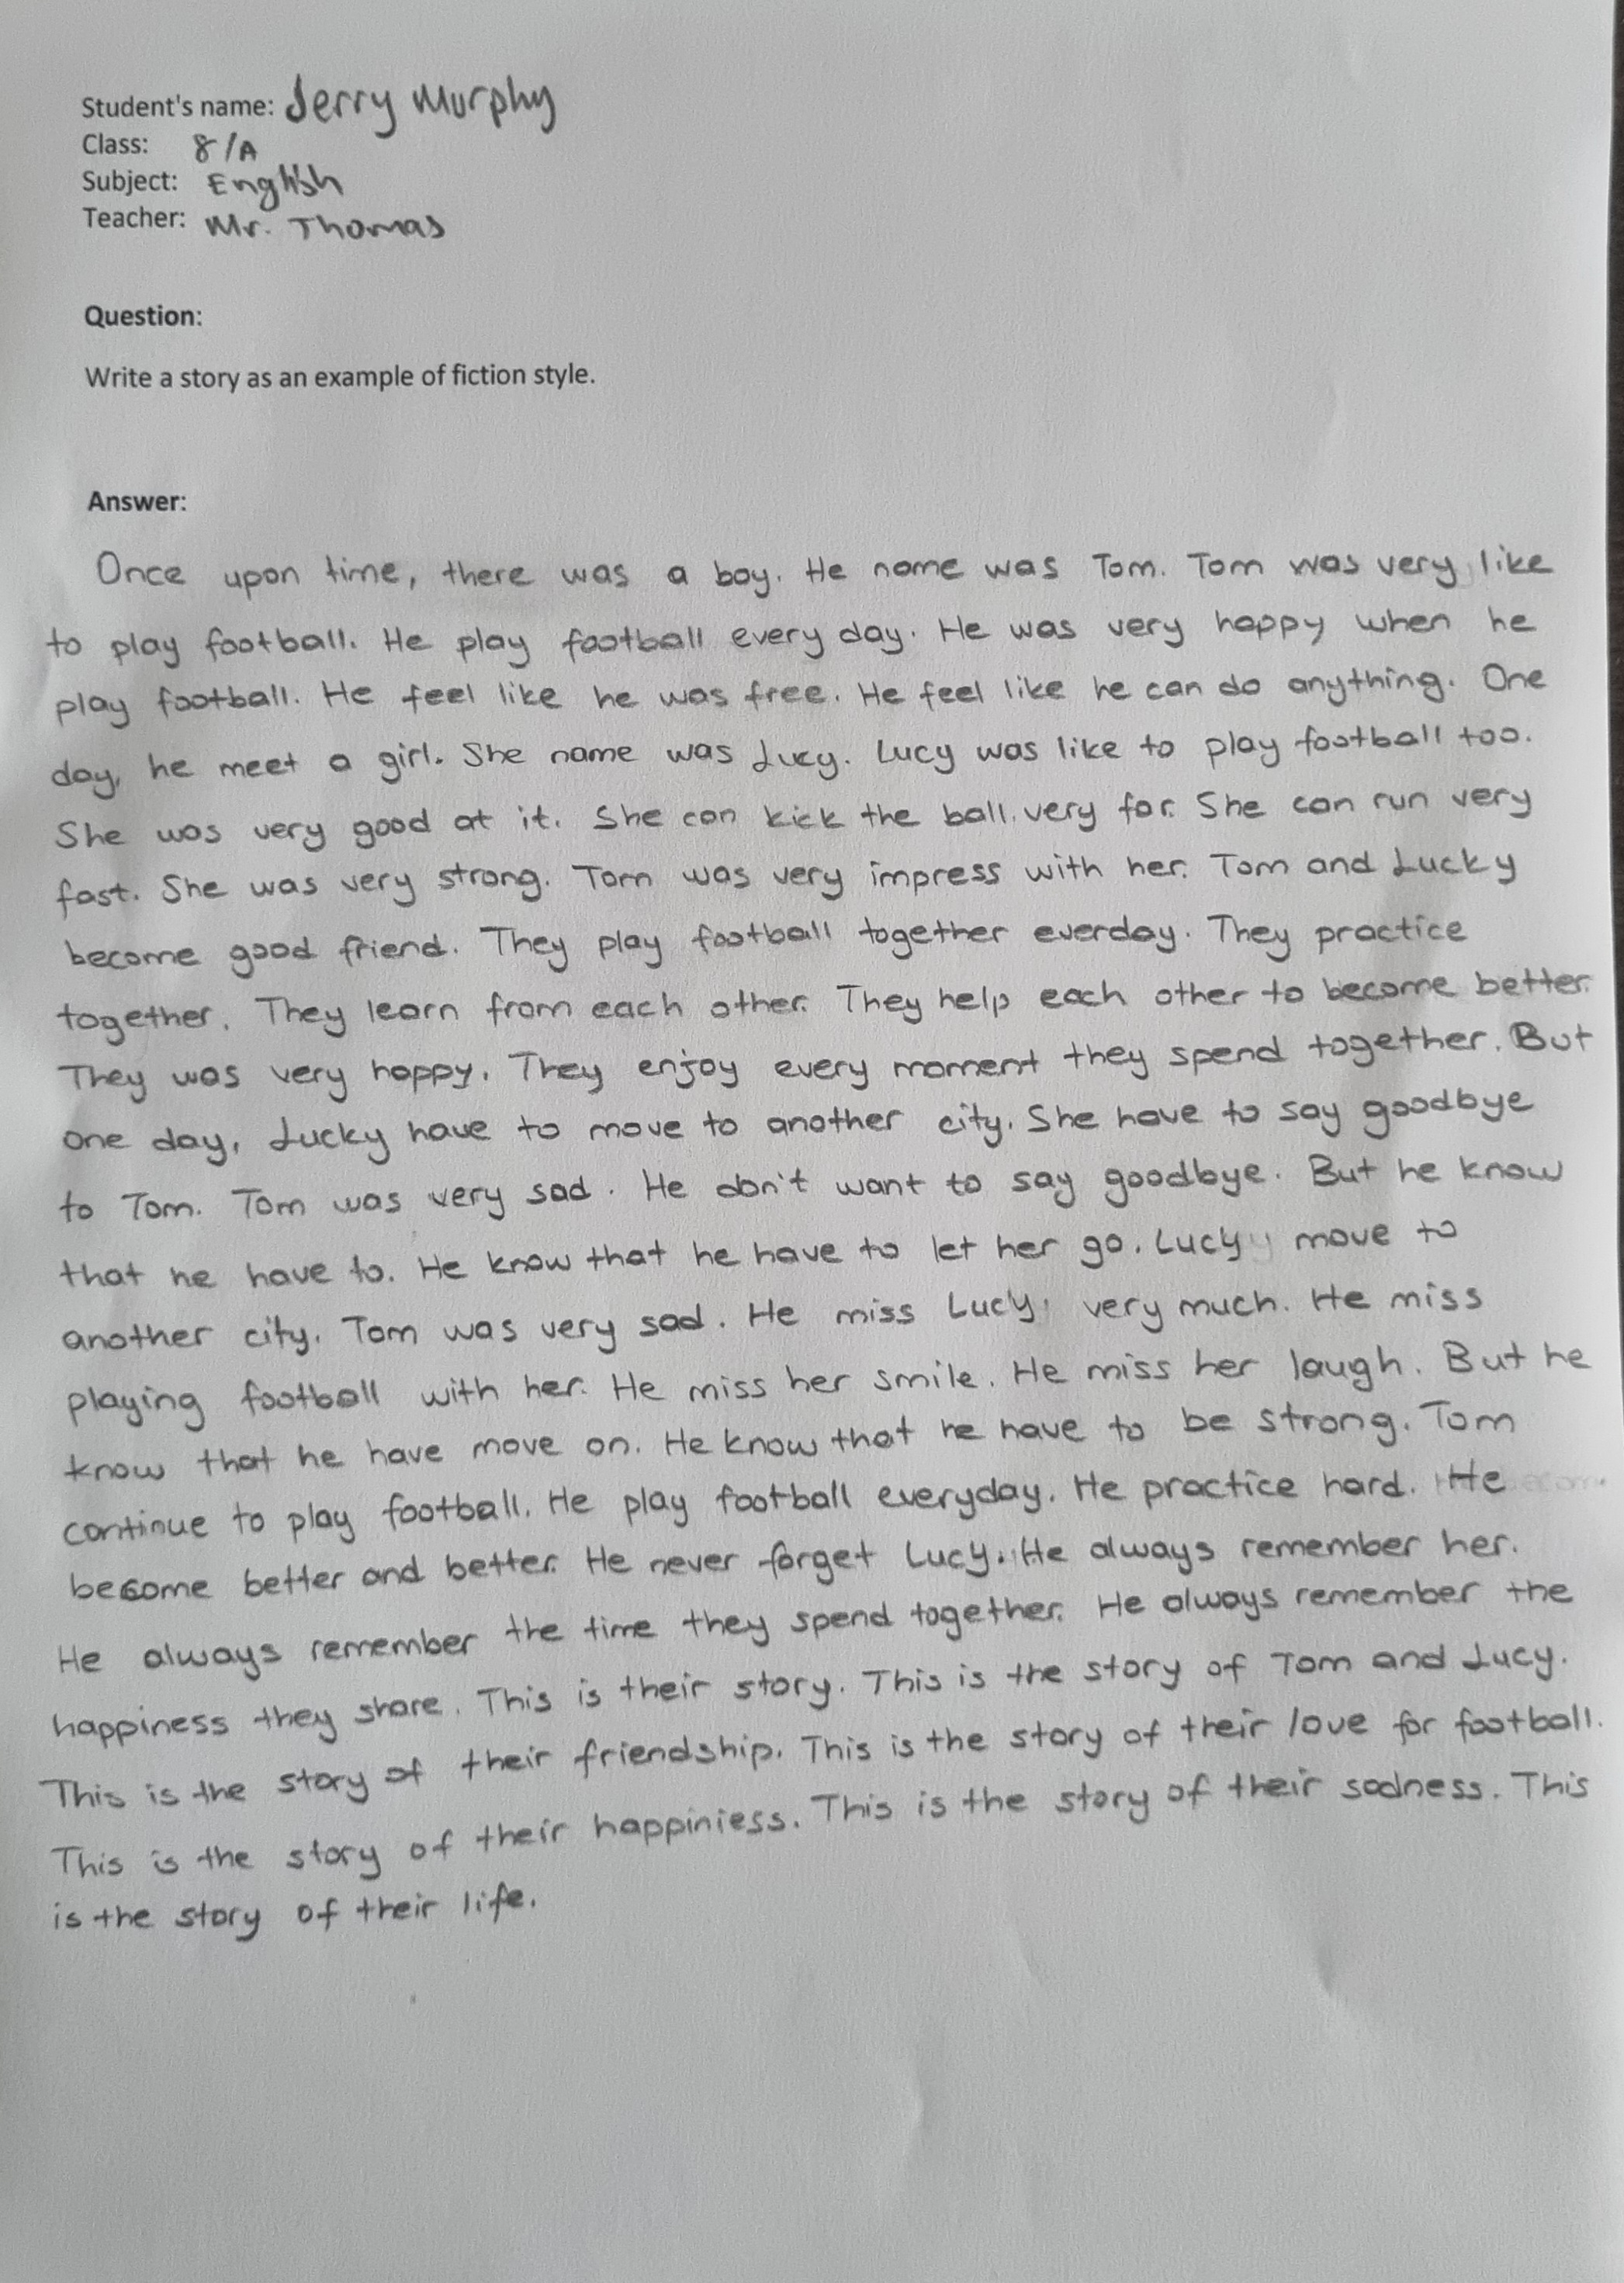 Student's name: Jerry Murphy
Class: 8/A
Subject: English
Teacher: Mr. Thomas
Question:
Write a story as an example of fiction style.
Answer:
Once upon time, there was a boy. He name was Tom. Tom was very like
to play football. He play football every day. He was very happy when he
play football. He feel like he was free. He feel like he can do anything. One
day, he meet a girl. She name was Lucy. Lucy was like to play football too.
She was very good at it. She can kick the ball very far. She can run very
fast. She was very strong. Tom was very impress with her. Tom and Lucky
become good friend. They play football together everday. They practice
together. They learn from each other. They help each other to become better.
They was very happy. They enjoy every moment they spend together. But
one day, Lucky have to move to another city. She have to say goodbye
to Tom. Tom was very sad. He don't want to say goodbye. But he know
that he have to. He know that he have to let her go. Lucy move to
another city. Tom was very sad. He miss Lucy very much. He miss
playing football with her. He miss her smile. He miss her laugh. But he
know that he have move on. He know that he have to be strong. Tom
continue to play football. He play football everyday. He practice hard. He
become better and better. He never forget Lucy. He always remember her.
He always remember the time they spend together. He always remember the
happiness they share. This is their story. This is the story of Tom and Lucy.
This is the story of their friendship. This is the story of their love for football.
This is the story of their happiniess. This is the story of their sadness. This
is the story of their life.